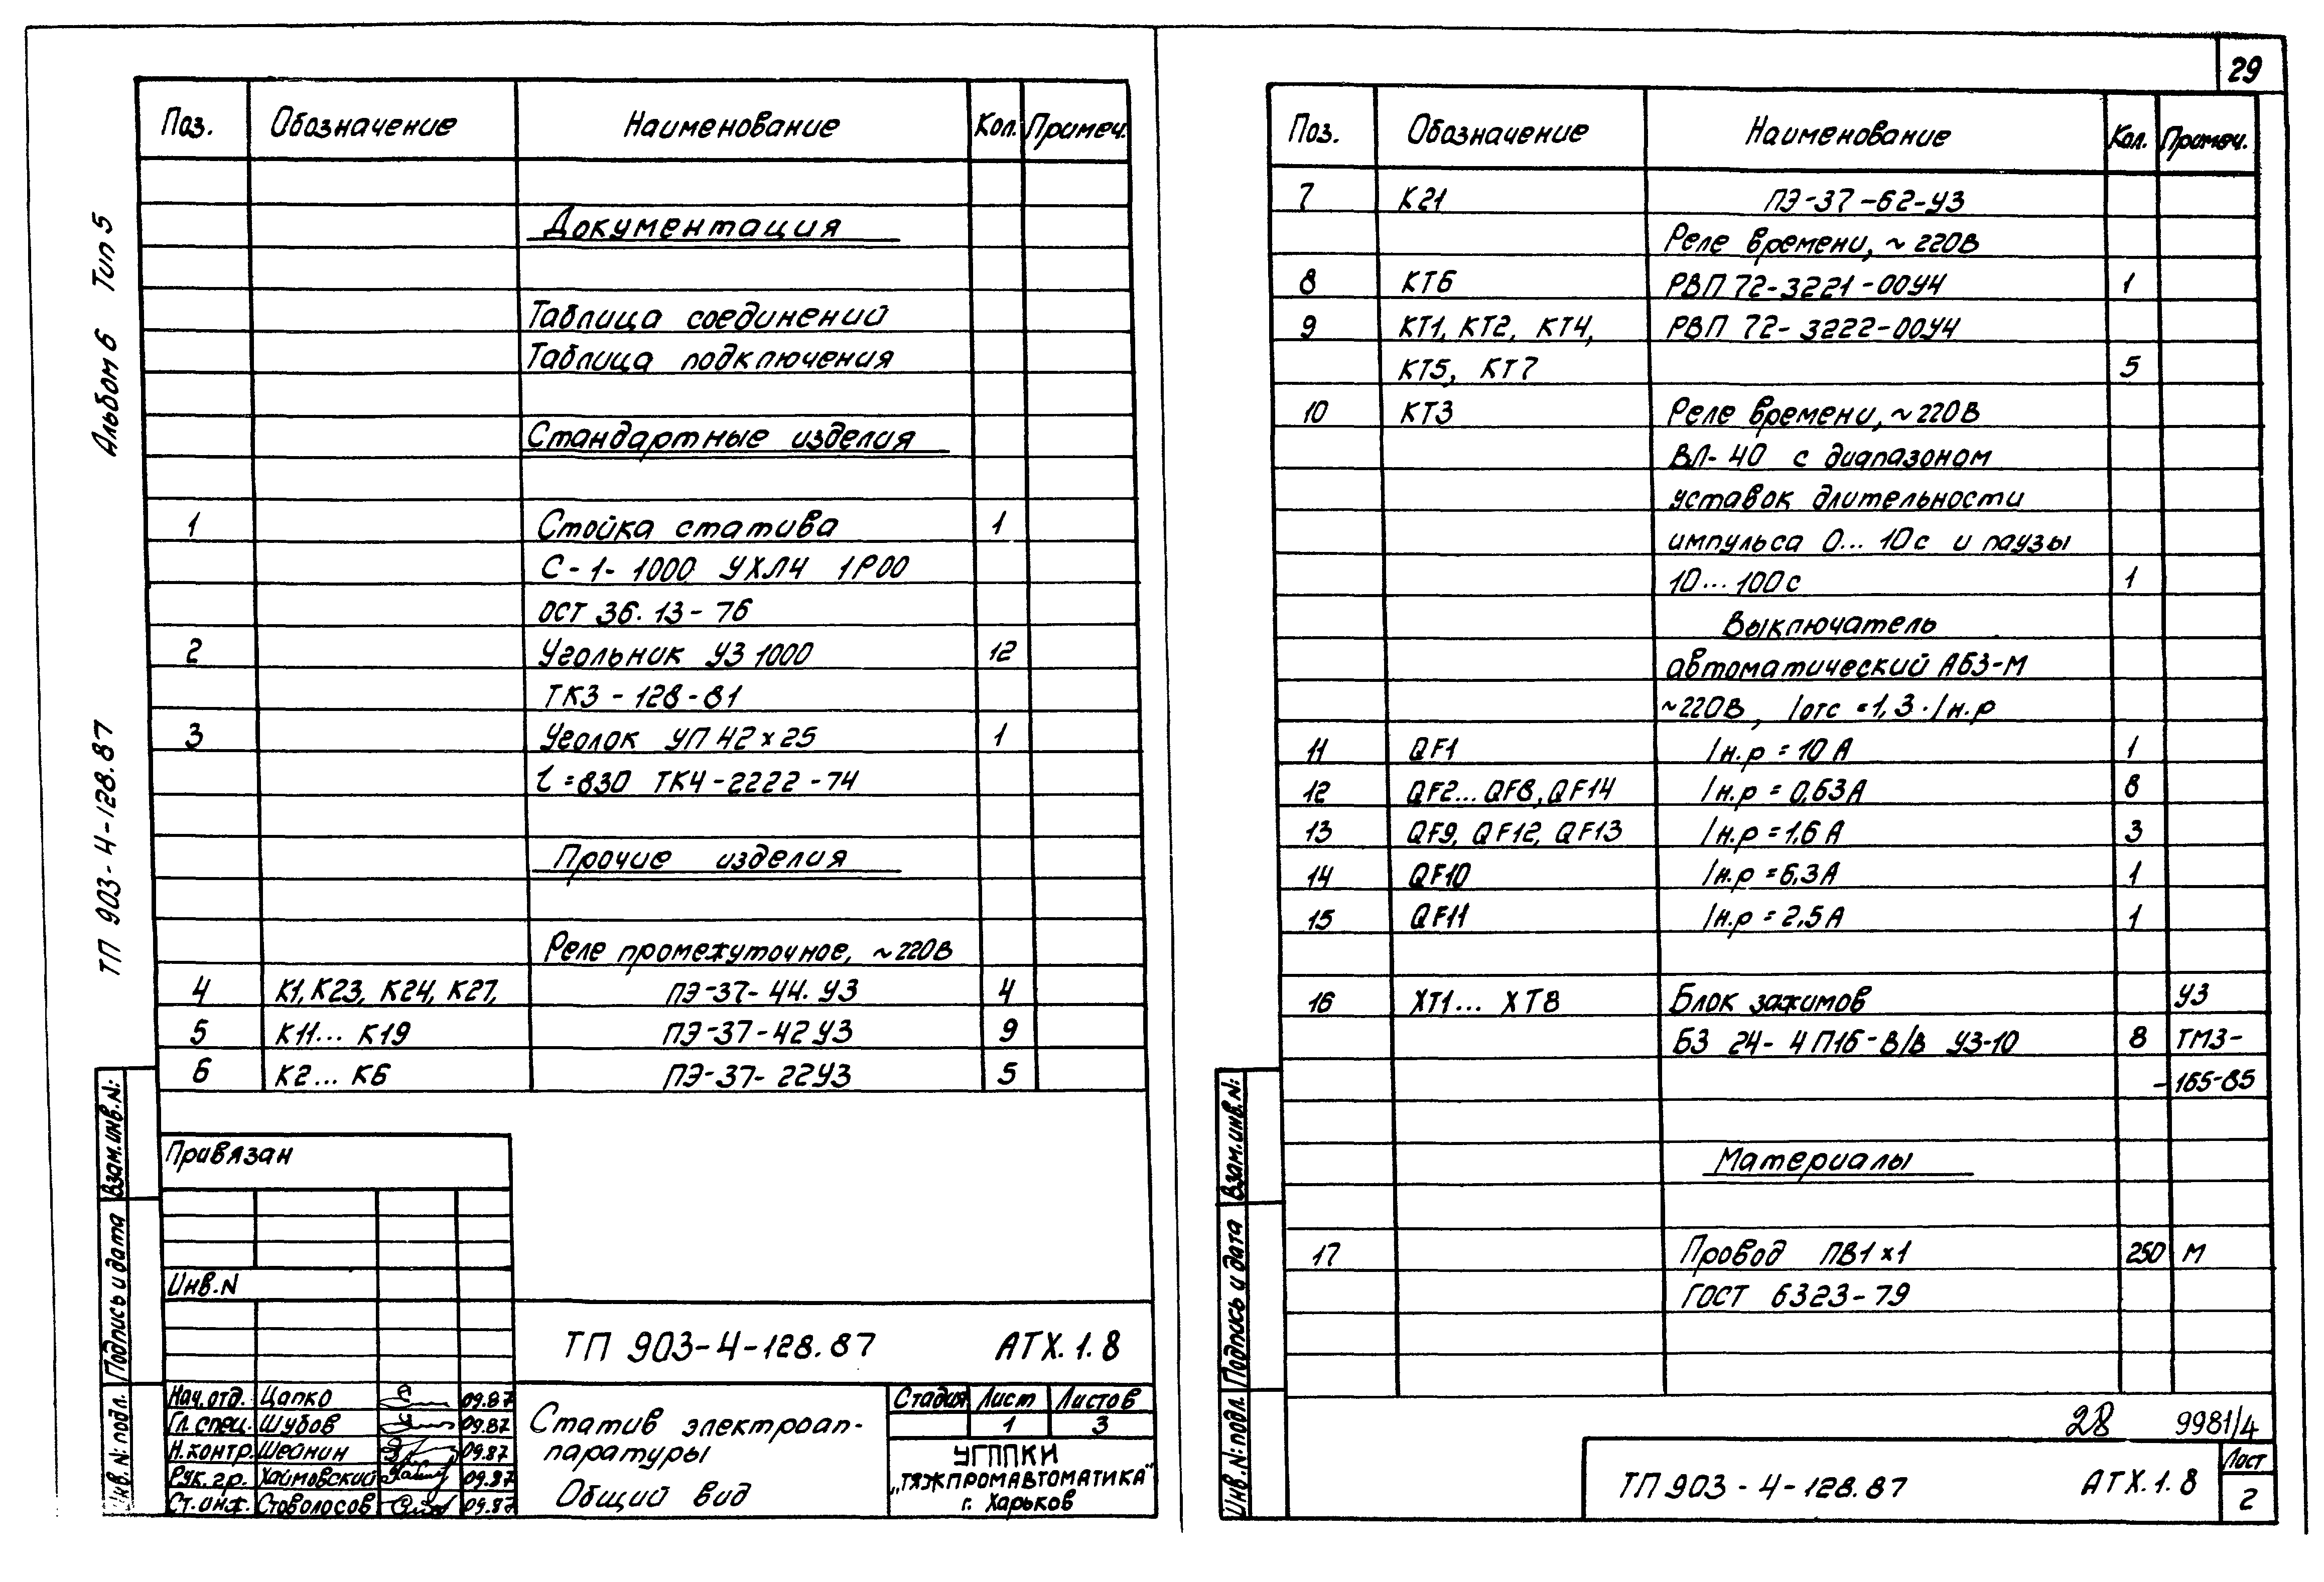 Альбом 6 Тип 5
ТП 903-4-128.87
Поз. Обозначение Наименование Кол. Примеч.
Документация
Таблица соединений
Таблица подключения
Стандартные изделия
1 Стойка статива 1
С-1-1000 УХЛ4 1Р00
ОСТ 36.13-76
2 Угольник УЗ 1000 12
ТКЗ-128-81
3 Уголок УП 42х25 1
ℓ=830 ТК4-2222-74
Прочие изделия
Реле промежуточное, ~220В
4 К1, К23, К24, К27, ПЭ-37-44.У3 4
5 К11... К19 ПЭ-37-42У3 9
6 К2... К6 ПЭ-37-22У3 5
Привязан
Инв.N
ТП 903-4-128.87 АТХ.1.8
Нач.отд. Цапко 09.87
Гл.спец. Шубов 09.87
Н.контр. Шейнин 09.87
Рук.гр. Хаймовский 09.87
Ст.инж. Стоволосов 09.87
Статив электроап-
паратуры
Общий вид
Стадия Лист Листов
1 3
УГППКИ
„ТЯЖПРОМАВТОМАТИКА"
г. Харьков
Взам.инв.N:
Подпись и дата
Инв.N:подл.
29
Поз. Обозначение Наименование Кол. Примеч.
7 К21 ПЭ-37-62-У3
Реле времени, ~220В
8 КТ6 РВП 72-3221-00У4 1
9 КТ1, КТ2, КТ4, РВП 72-3222-00У4
КТ5, КТ7 5
10 КТ3 Реле времени, ~220В
ВЛ-40 с диапазоном
уставок длительности
импульса 0...10с и паузы
10...100с 1
Выключатель
автоматический АБ3-М
~220В, Iотс=1,3·Iн.р
11 QF1 Iн.р=10А 1
12 QF2...QF8, QF14 Iн.р=0,63А 8
13 QF9, QF12, QF13 Iн.р=1,6А 3
14 QF10 Iн.р=6,3А 1
15 QF11 Iн.р=2,5А 1
16 ХТ1... ХТ8 Блок зажимов УЗ
БЗ 24-4П16-В/В У3-10 8 ТМЗ-
-165-85
Материалы
17 Провод ПВ1х1 250 м
ГОСТ 6323-79
28 9981/4
ТП 903-4-128.87 АТХ.1.8
Лист
2
Взам.инв.N:
Подпись и дата
Инв.N:подл.